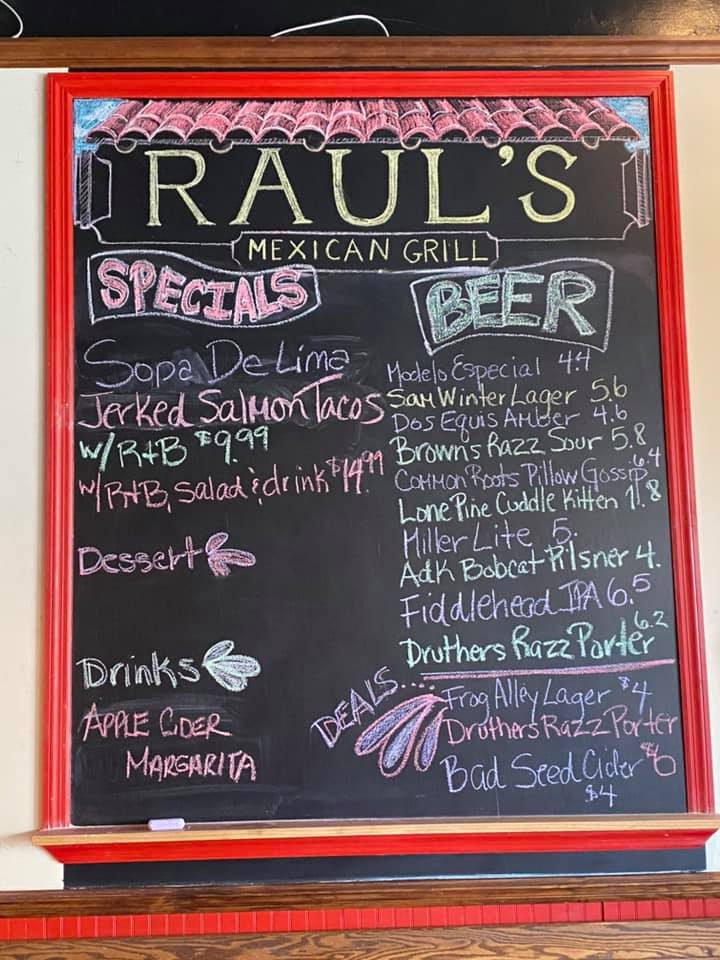 RAUL'S
MEXICAN GRILL
SPECIALS
Sopa De Lima
Jerked Salmon Tacos
w/R+B $9.99
w/R+B, Salad & drink $14.99
Dessert
Drinks
APPLE CIDER
MARGARITA
BEER
Modelo Especial 4.4
Sam Winter Lager 5.6
Dos Equis Amber 4.6
Browns Razz Sour 5.8
Common Roots Pillow Gossip 6.4
Lone Pine Cuddle Kitten
Miller Lite 5.
Adk Bobcat Pilsner 4.
Fiddlehead IPA 6.5
Druthers Razz Porter 6.2
DEALS...
Frog Alley Lager $4
Druthers Razz Porter
$6
Bad Seed Cider
$4